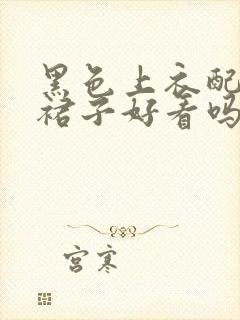 黑色上衣配
裙子好看吗
宫寒